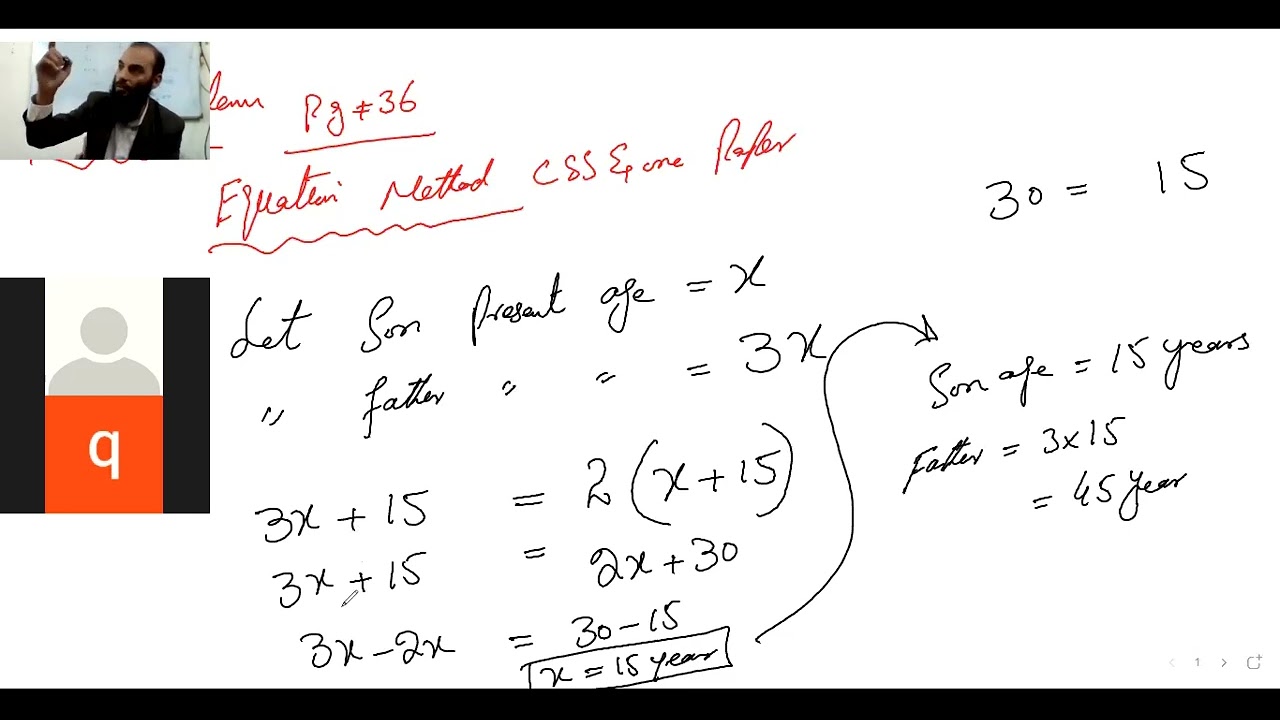 Pg # 36
Equation Method CSS & one Paper
30 = 15
Let Son Present age = x
" father " " = 3x
3x + 15 = 2(x + 15)
3x + 15 = 2x + 30
3x - 2x = 30 - 15
x = 15 year
Son age = 15 years
Father = 3 x 15
= 45 year
q
1